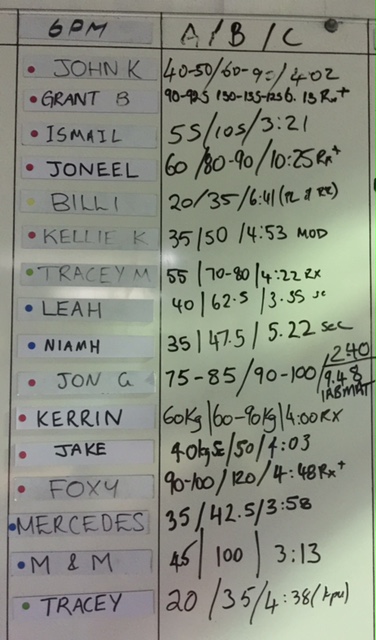 6PM A/B/C
JOHN K 40-50/60-90/4:02
GRANT B 90-92.5 130-135-125 6:13 Rx+
ISMAIL 55/105/3:21
JONEEL 60/80-90/10:25 Rx+
BILLI 20/35/6:41
KELLIE K 35/50/4:53 MOD
TRACEY M 55/70-80/4:22 RX
LEAH 40/62.5/3.55 sc
NIAMH 35/47.5/5.22 sec
JON G 75-85/90-100/2:40
9.48
1ABMAT
KERRIN 60Kg/60-90kg/4:00RX
JAKE 40kg/50/4:03
FOXY 90-100/120/4:48 Rx+
MERCEDES 35/42.5/3:58
M & M 45/100/3:13
TRACEY 20/35/4:38